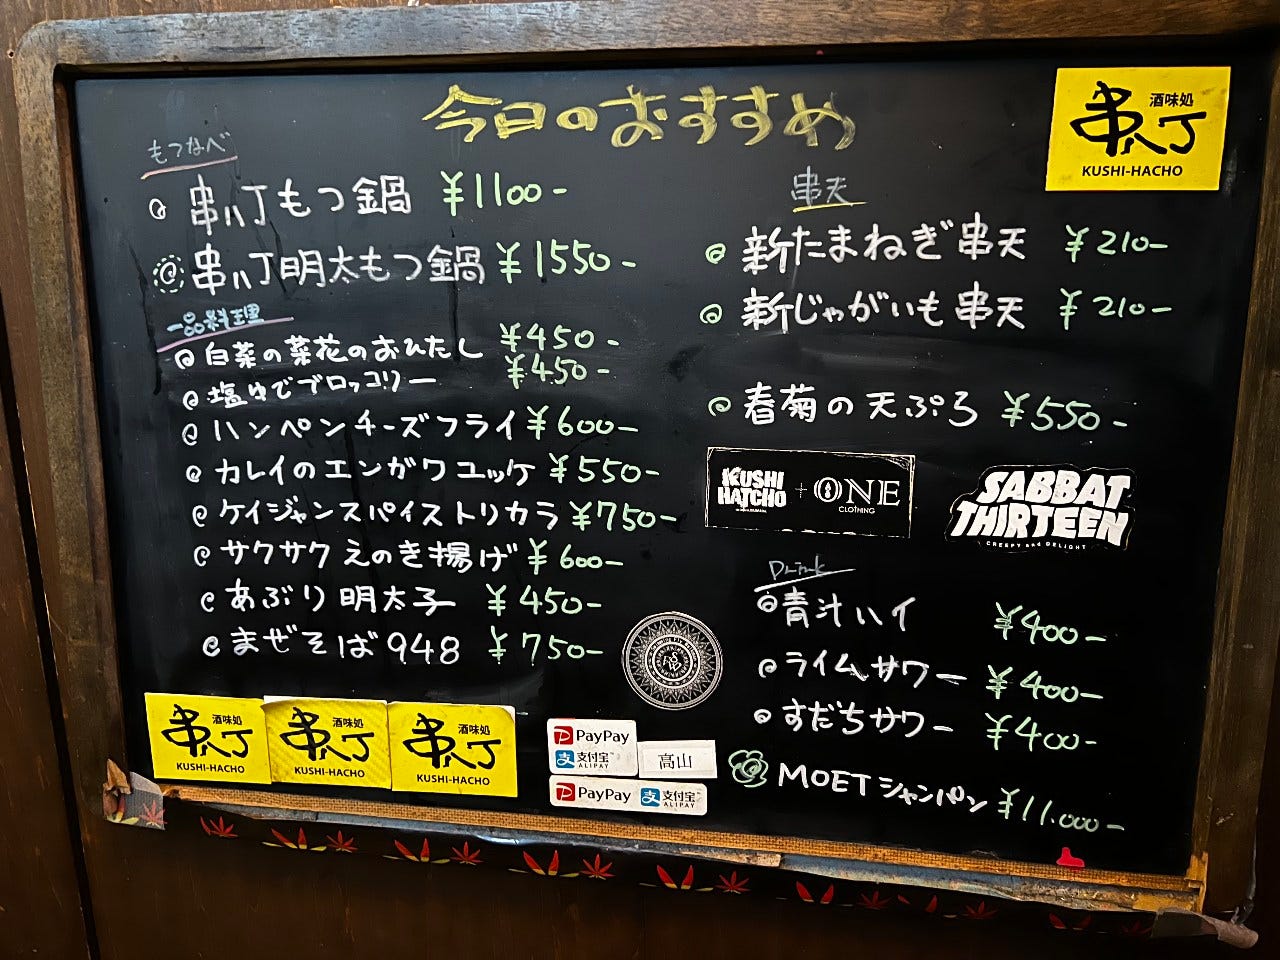 今日のおすすめ
もつなべ
串八丁もつ鍋 ¥1100-
串八丁明太もつ鍋 ¥1550-
一品料理
白菜の菜花のおひたし ¥450-
塩ゆでブロッコリー ¥450-
ハンペンチーズフライ ¥600-
カレイのエンガワユッケ ¥550-
ケイジャンスパイストリカラ ¥750-
サクサクえのき揚げ ¥600-
あぶり明太子 ¥450-
まぜそば948 ¥750-
酒味処
串八丁
KUSHI-HACHO
串天
新たまねぎ串天 ¥210-
新じゃがいも串天 ¥210-
春菊の天ぷら ¥550-
KUSHI
HATCHO
+ ONE
CLOTHING
SABBAT
THIRTEEN
CREEPY and DELIGHT
Drink
青汁ハイ ¥400-
ライムサワー ¥400-
すだちサワー ¥400-
MOETシャンパン ¥11.000-
酒味処
串八丁
KUSHI-HACHO
酒味処
串八丁
KUSHI-HACHO
酒味処
串八丁
KUSHI-HACHO
PayPay
支付宝
ALIPAY
高山
PayPay
支付宝
ALIPAY